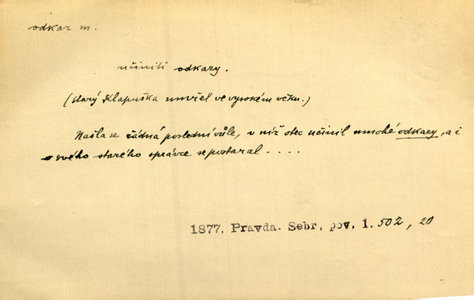 odkaz m.
učiniti odkazy.
(starý Klapuška umřel ve vysokém věku.)
Našla se řádná poslední vůle, v níž otec učinil mnohé odkazy, a i
o svého starého správce se postaral . . . .
1877. Pravda. Sebr. pov. 1. 502, 20